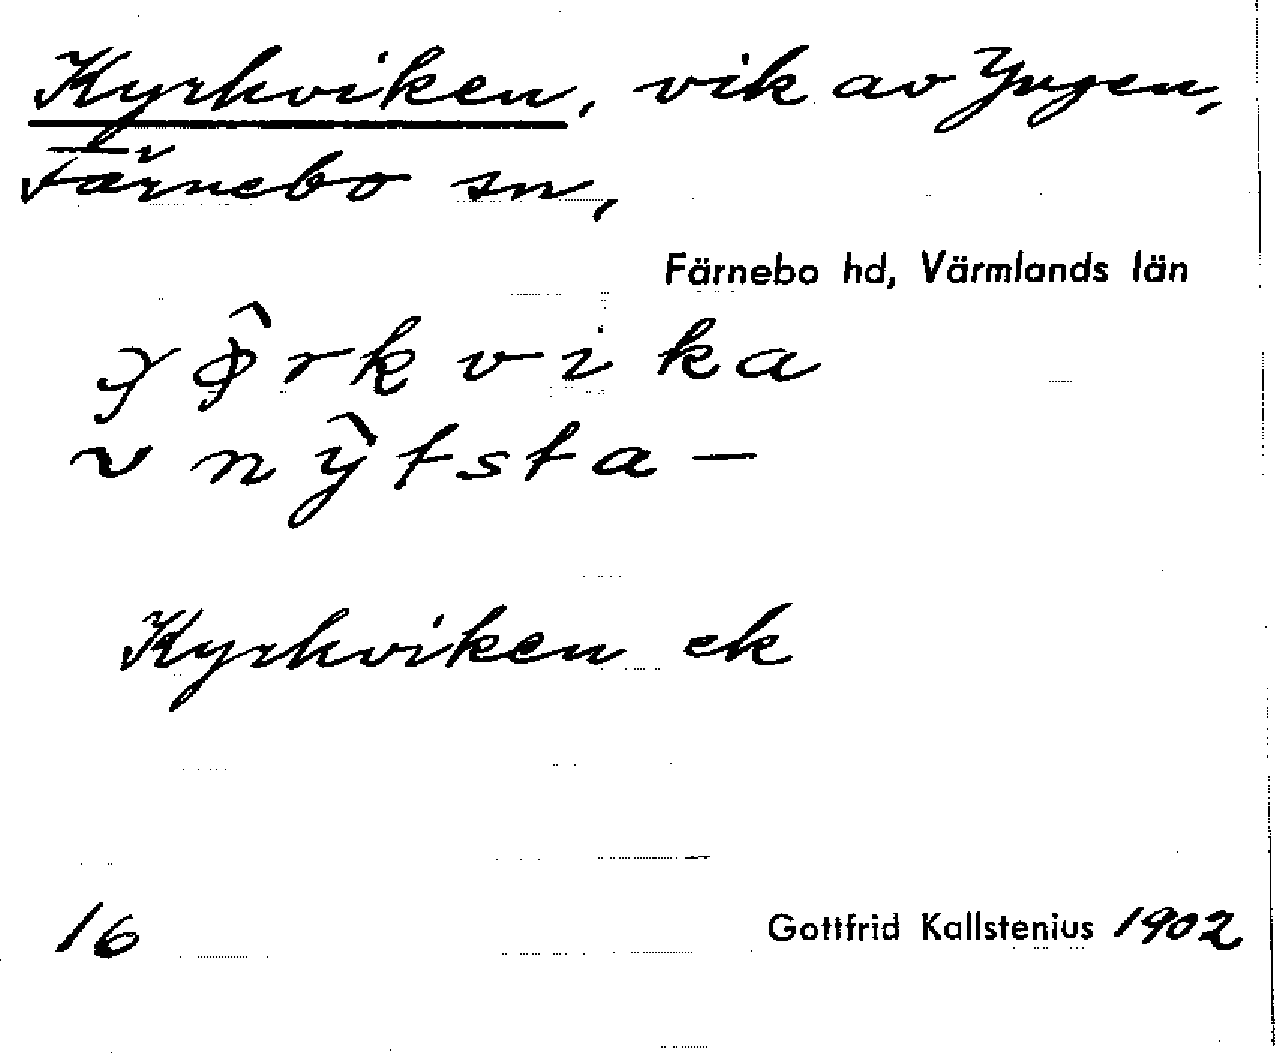 Kyrkviken, vik av Yngen,
Färnebo sn,
Färnebo hd, Värmlands län
rkvika
nŷtsta —
Kyrkviken ek
16
Gottfrid Kallstenius 1902